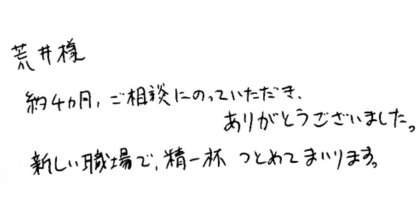 荒井様
約4ヵ月、ご相談にのっていただき、
ありがとうございました。
新しい職場で、精一杯 つとめてまいります。